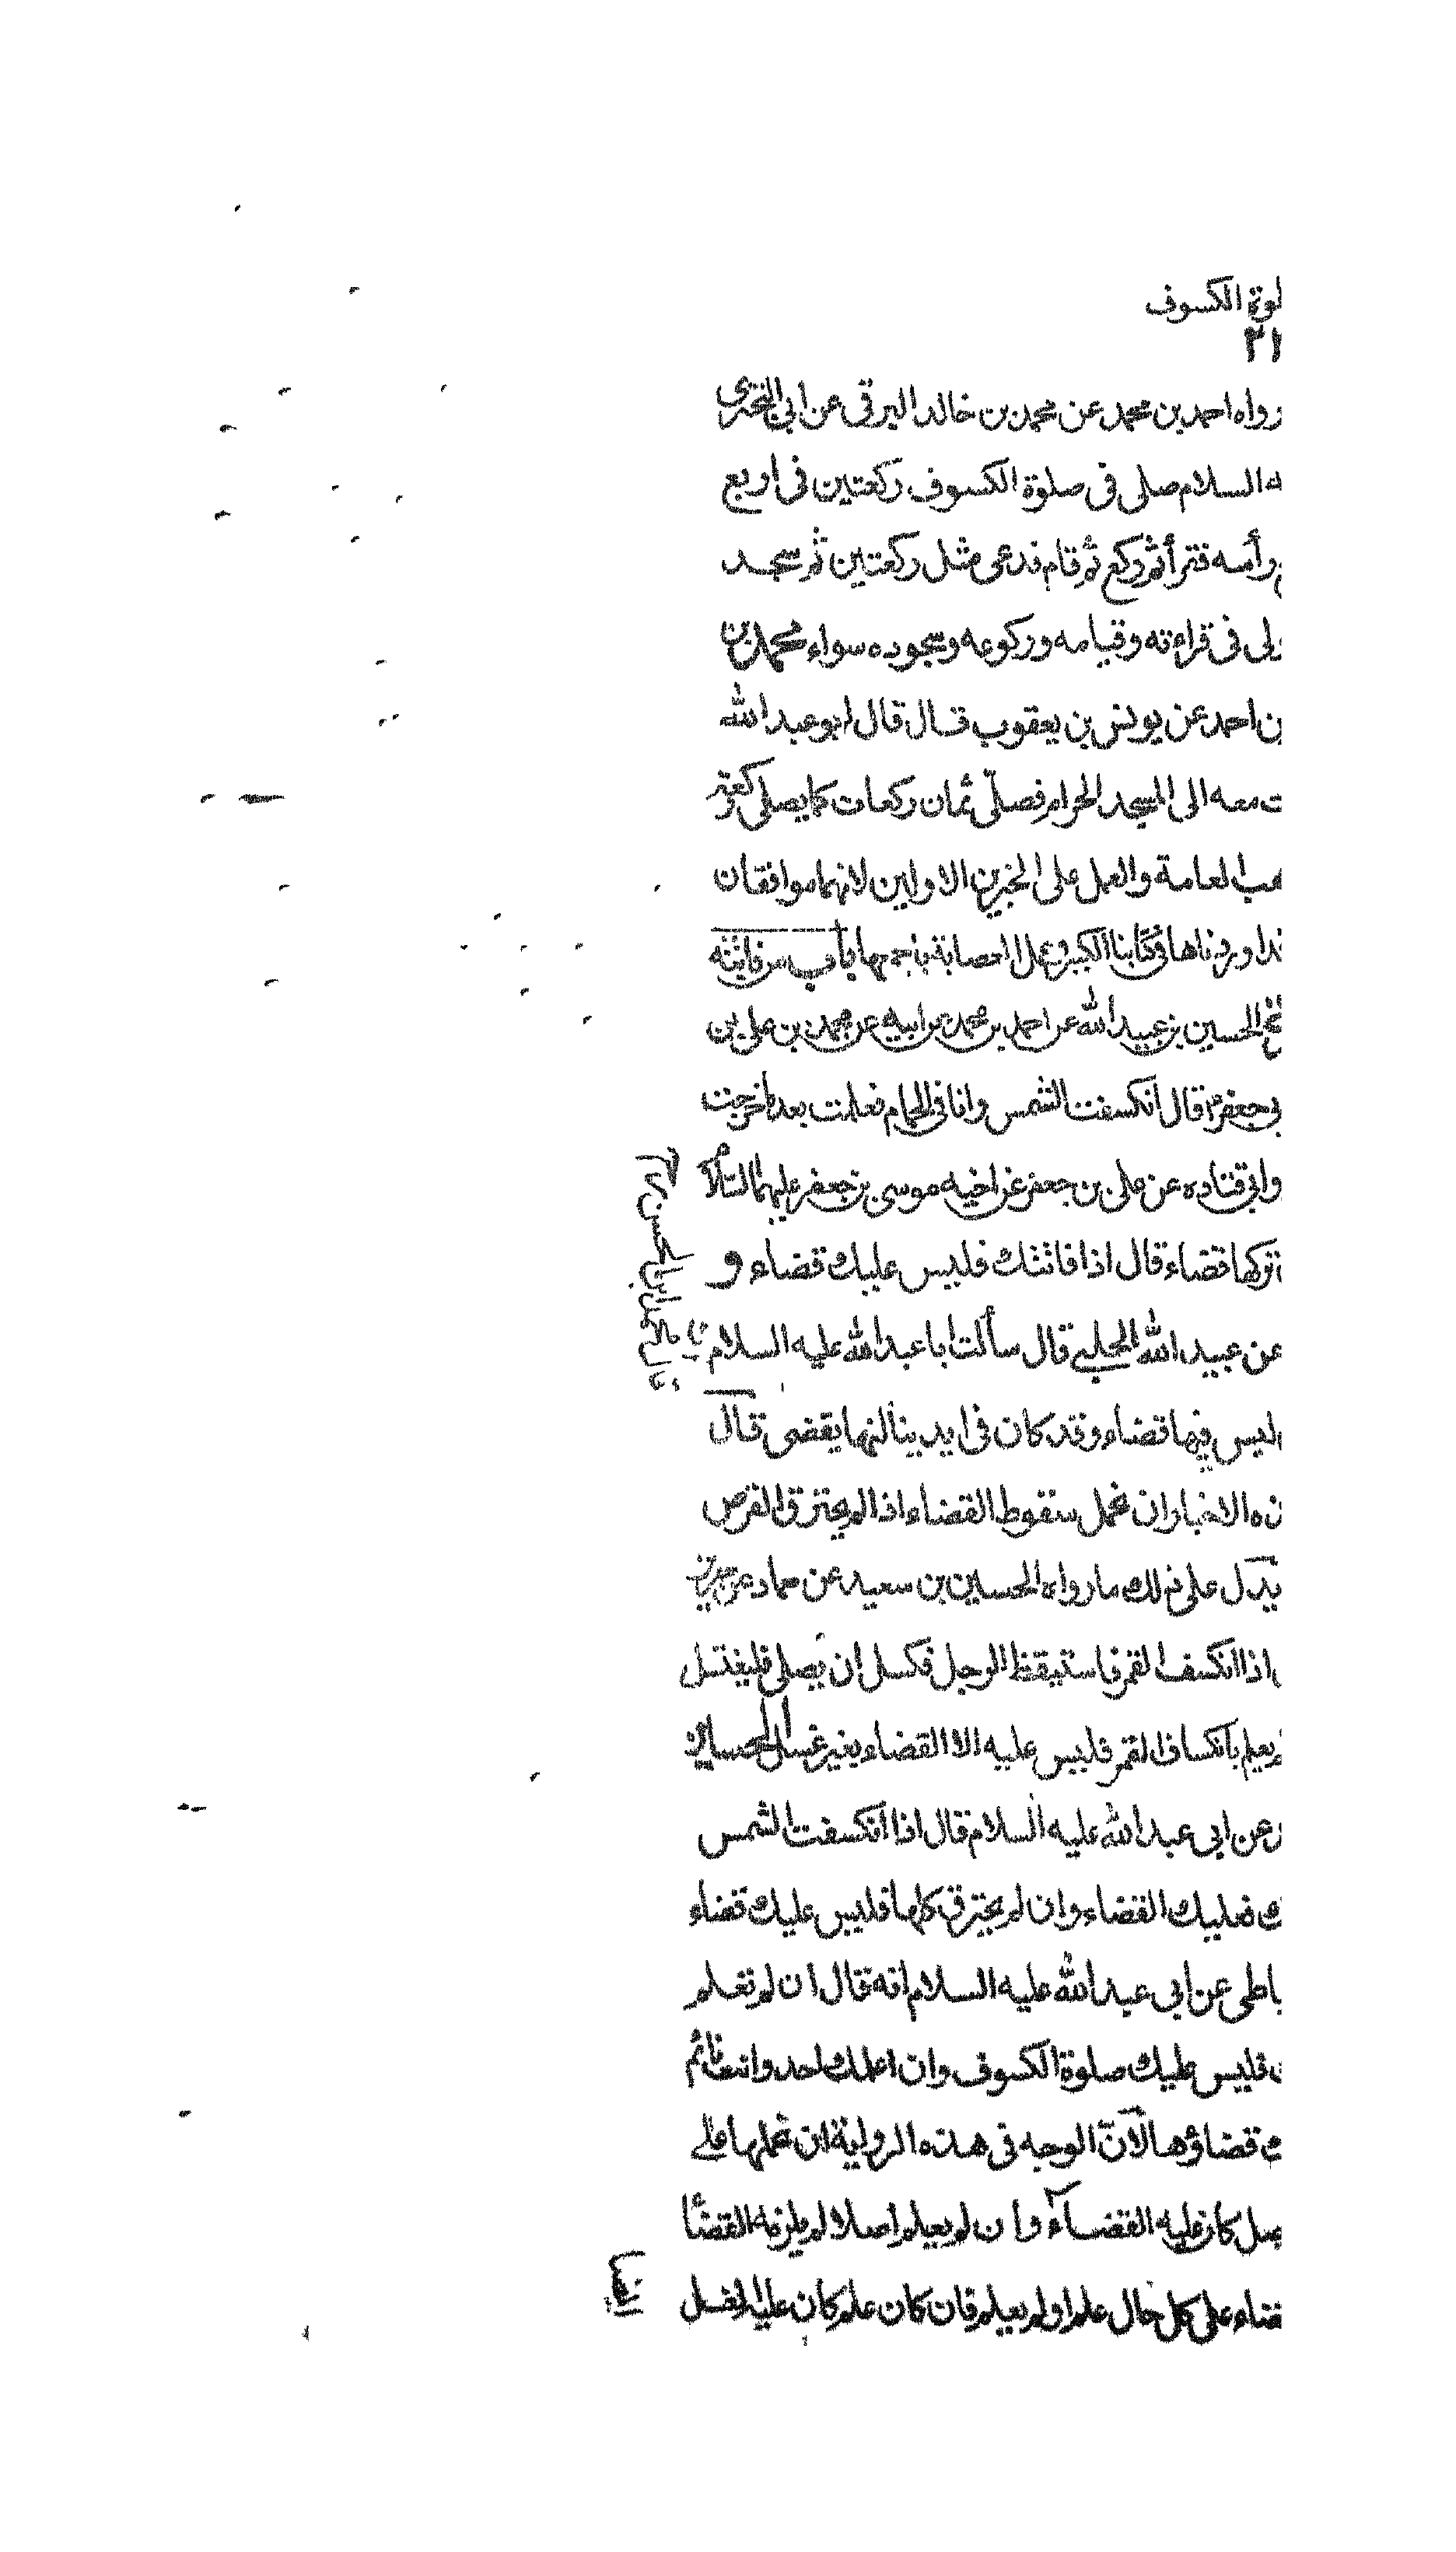 لوة الكسوف
٣١
رواه احمد بن محمد عن محمد بن خالد البرقى عن ابى البخترى
ه السلام صلى فى صلوة الكسوف ركعتين فى اربع
رأسه فقرأ ثم ركع ثم قام فدعى مثل ركعتين ثم سجد
ولى فى قراءته وقيامه وركوعه وسجوده سواء محمد بن
ن احمد عن يونس بن يعقوب قال قال ابو عبد الله
ت معه الى المسجد الحرام فصلى ثمان ركعات كما يصلى ركعة
هب العامة والعمل على الخبرين الاولين لانهما موافقان
وردناها فى كتابنا الكبير وعمل العصابة باجمعها باب من فاتته
الحسين بن عبيد الله عن احمد بن محمد عن ابيه عن محمد بن على بن
بى جعفر قال انكسفت الشمس وانا فى الحمام فعلمت بعد ما خرجت
وابى قتاده عن على بن جعفر عن اخيه موسى بن جعفر عليهما السلام
تركها قضاء قال اذا فاتتك فليس عليك قضاء و
عن عبيد الله الحلبى قال سألت ابا عبد الله عليه السلام
ليس فيها قضاء وقد كان فى ايدينا انها يقضى قال
ذه الاخبار ان نحمل سقوط القضاء اذا لم يحترق القرص
يدل على ذلك ما رواه الحسين بن سعيد عن حماد عن حريز
اذا انكسف القمر فاستيقظ الرجل فكسل ان يصلى فليغتسل
م يعلم بانكساف القمر فليس عليه الا القضاء بغير غسل الحسين
عن ابى عبد الله عليه السلام قال اذا انكسفت الشمس
ك فعليك القضاء وان لم يحترق كلها فليس عليك قضاء
باطى عن ابى عبد الله عليه السلام انه قال ان لم تعلم
فليس عليك صلوة الكسوف وان اعلمك احد وانت نائم
قضاؤها لان الوجه فى هذه الرواية ان نحملها على
يصل كان عليه القضاء وان لم يعلم اصلا لم يلزمه القضاء
ضاء على كل حال علم او لم يعلم فان كان علم كان عليه الغسل